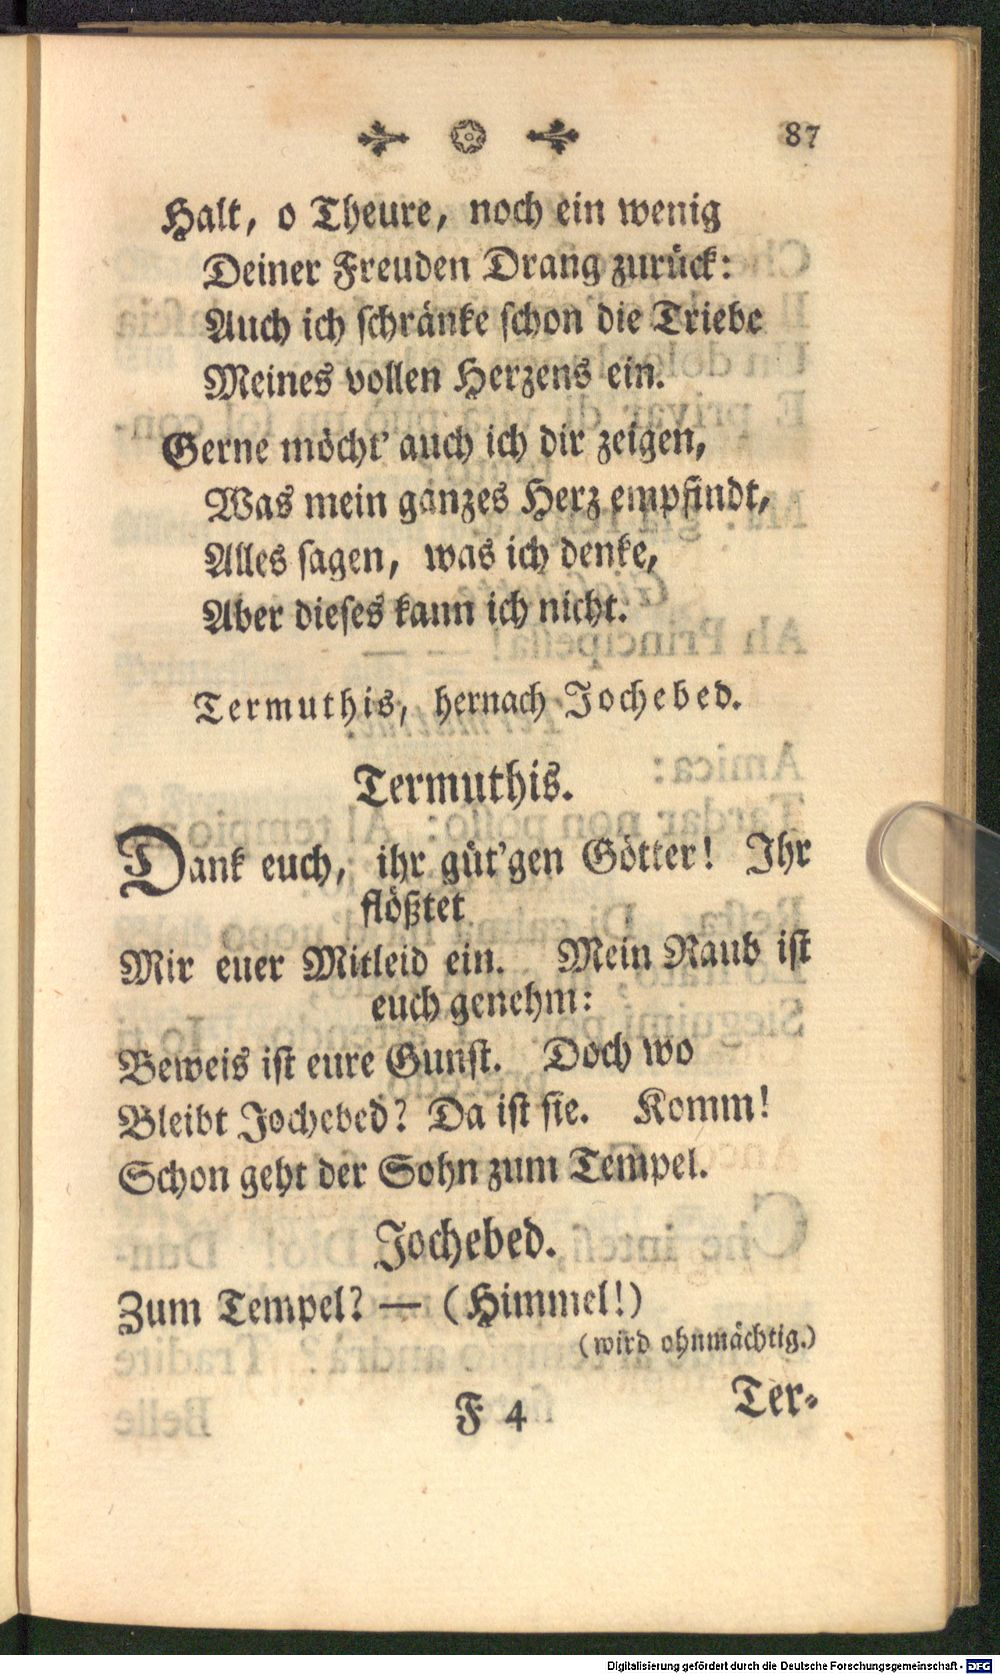 87
Halt, o Theure, noch ein wenig
Deiner Freuden Drang zurück:
Auch ich ſchränke ſchon die Triebe
Meines vollen Herzens ein.
Gerne möcht' auch ich dir zeigen,
Was mein ganzes Herz empfindt,
Alles ſagen, was ich denke,
Aber dieſes kann ich nicht.
Termuthis, hernach Jochebed.
Termuthis.
Dank euch, ihr güt'gen Götter! Ihr
flößtet
Mir euer Mitleid ein. Mein Raub iſt
euch genehm:
Beweis iſt eure Gunſt. Doch wo
Bleibt Jochebed? Da iſt ſie. Komm!
Schon geht der Sohn zum Tempel.
Jochebed.
Zum Tempel? — (Himmel!)
(wird ohnmächtig.)
F 4 Ter-
Digitalisierung gefördert durch die Deutsche Forschungsgemeinschaft - DFG